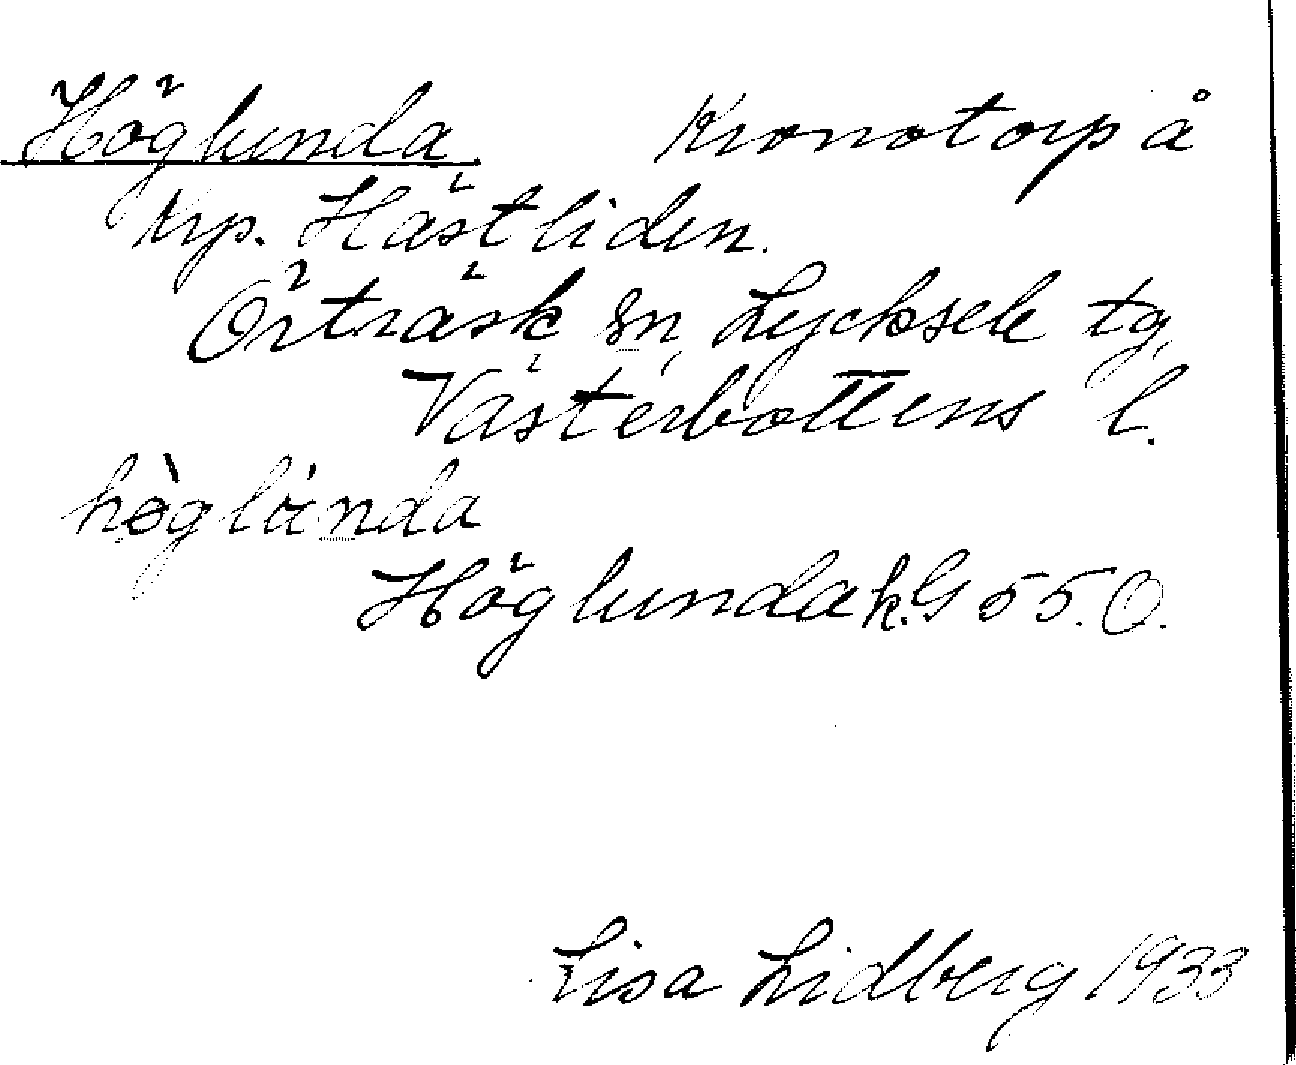 Höglunda Kronotorp å
krp. Hästliden.
Örträsk sn, Lycksele tg,
Västerbottens l.
höglunda
Höglunda k. G 55. Ö.
Lisa Lidberg 1933